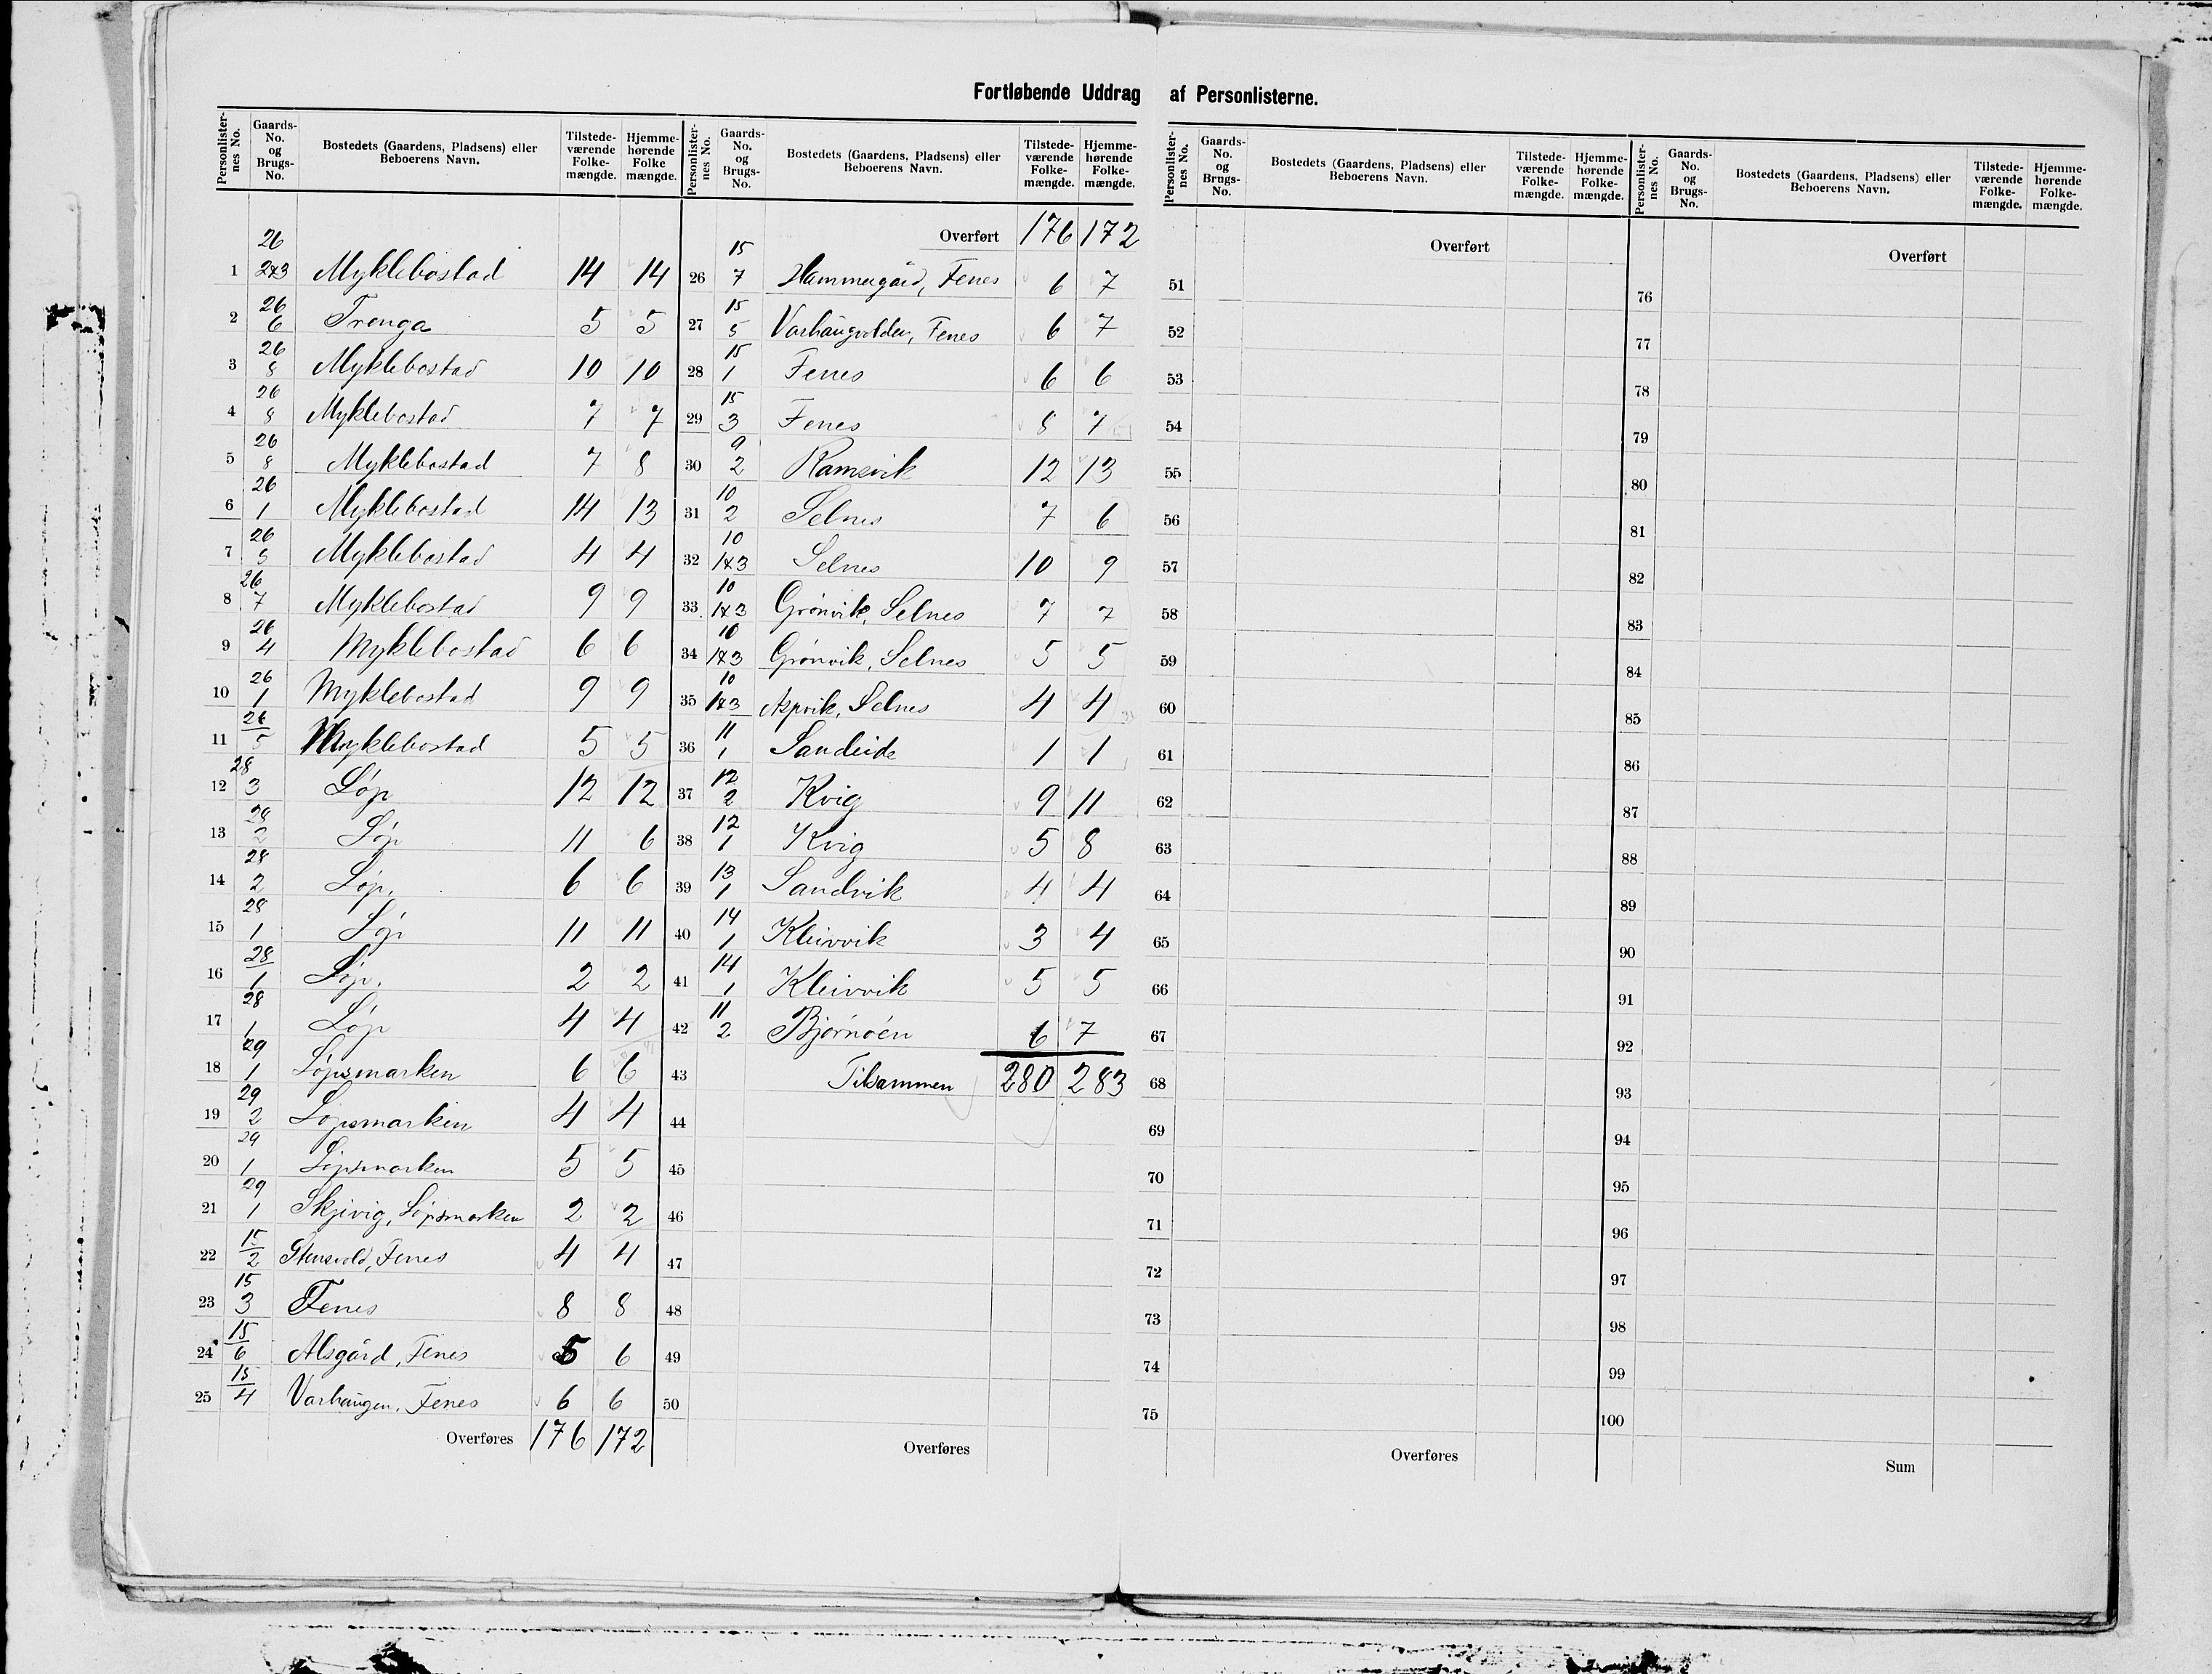 Fortløbende Uddrag af Personlisterne.
Personlister-nes No. | Gaards-No. og Brugs-No. | Bostedets (Gaardens, Pladsens) eller Beboerens Navn. | Tilstede-værende Folke-mængde. | Hjemme-hørende Folke mængde.
1 26 2&3 Myklebostad 14 14
2 26 6 Trenga 5 5
3 26 8 Myklebostad 10 10
4 26 8 Myklebostad 7 7
5 26 8 Myklebostad 7 8
6 26 1 Myklebostad 14 13
7 26 5 Myklebostad 4 4
8 26 7 Myklebostad 9 9
9 26 4 Myklebostad 6 6
10 26 1 Myklebostad 9 9
11 26 5 Myklebostad 5 5
12 28 3 Løp 12 12
13 28 2 Løp 11 6
14 28 2 Løp. 6 6
15 28 1 Løp 11 11
16 28 1 Løp. 2 2
17 28 1 Løp 4 4
18 29 1 Løpsmarken 6 6
19 29 2 Løpsmarken 4 4
20 29 1 Løpsmarken 5 5
21 29 1 Skjevig, Løpsmarken 2 2
22 15 2 Stensvold, Fenes 4 4
23 15 3 Fenes 8 8
24 15 6 Alsgård, Fenes 5 6
25 15 4 Varhaugen, Fenes 6 6
Overføres 176 172
Personlister-nes No. | Gaards-No. og Brugs-No. | Bostedets (Gaardens, Pladsens) eller Beboerens Navn. | Tilstede-værende Folke-mængde. | Hjemme-hørende Folke-mængde.
Overført 176 172
26 15 7 Hammergård, Fenes 6 7
27 15 5 Varhaugvolden, Fenes 6 7
28 15 1 Fenes 6 6
29 15 3 Fenes 8 7
30 9 2 Ramsvik 12 13
31 10 2 Selnes 7 6
32 10 1&3 Selnes 10 9
33 10 1&3 Grønvik, Selnes 7 7
34 10 1&3 Grønvik, Selnes 5 5
35 10 1&3 Aspvik, Selnes 4 4
36 11 1 Sandeide 1 1
37 12 2 Kvig 9 11
38 12 1 Kvig 5 8
39 13 1 Sandvik 4 4
40 14 1 Kleivvik 3 4
41 14 1 Kleivvik 5 5
42 11 2 Bjørnøen 6 7
43 Tilsammen 280 283
44
45
46
47
48
49
50
Overføres
Personlister-nes No. | Gaards-No. og Brugs-No. | Bostedets (Gaardens, Pladsens) eller Beboerens Navn. | Tilstede-værende Folke-mængde. | Hjemme-hørende Folke-mængde.
Overført
51
52
53
54
55
56
57
58
59
60
61
62
63
64
65
66
67
68
69
70
71
72
73
74
75
Overføres
Personlister-nes No. | Gaards-No. og Brugs-No. | Bostedets (Gaardens, Pladsens) eller Beboerens Navn. | Tilstede-værende Folke-mængde. | Hjemme-hørende Folke-mængde.
Overført
76
77
78
79
80
81
82
83
84
85
86
87
88
89
90
91
92
93
94
95
96
97
98
99
100
Sum